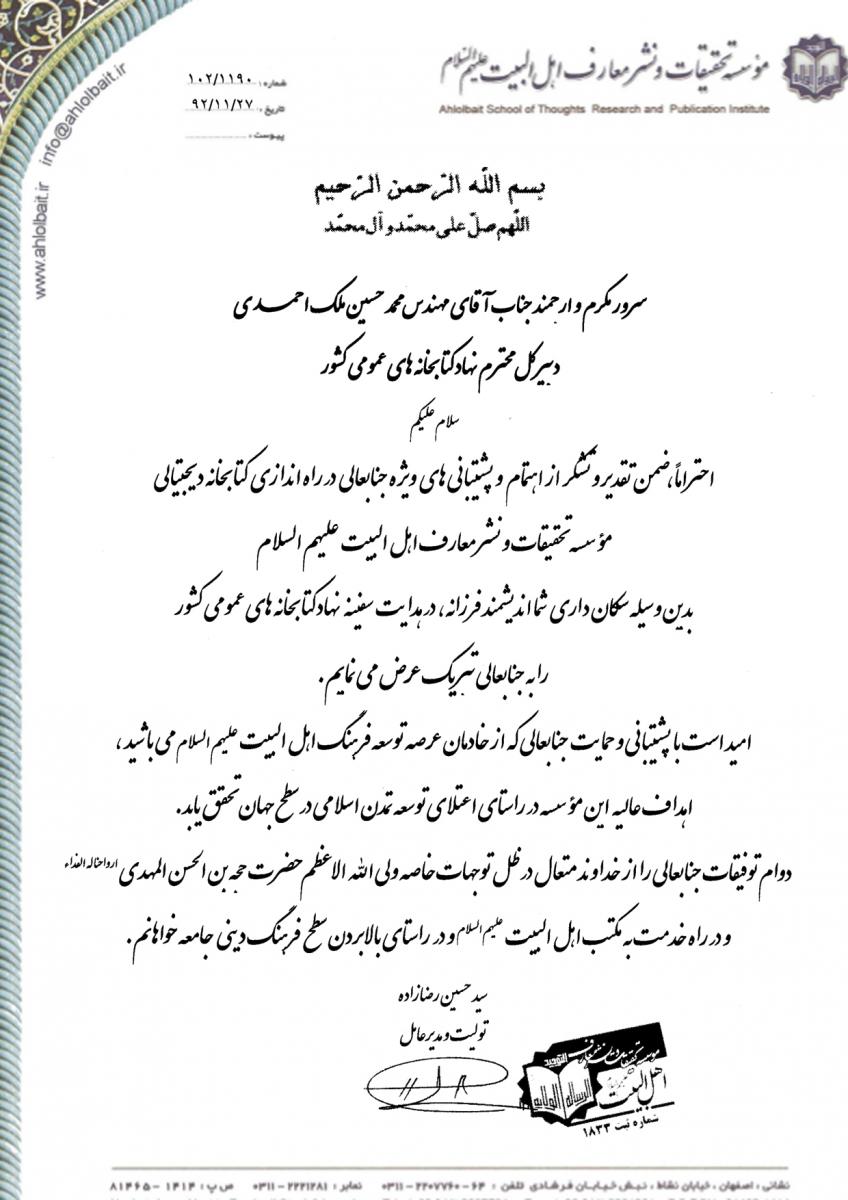 مؤسسه تحقیقات و نشر معارف اهل البیت علیهم السلام
Ahlolbait School of Thoughts Research and Publication Institute
شماره: ۱۰۲/۱۱۹۰
تاریخ: ۹۲/۱۱/۲۷
پیوست:
info@ahlolbait.ir
www.ahlolbait.ir
بسم اللّه الرّحمن الرّحیم
اللّهم صلّ علی محمّد و آل محمّد
سرور مکرم و ارجمند جناب آقای مهندس محمد حسین ملک احمدی
دبیرکل محترم نهاد کتابخانه های عمومی کشور
سلام علیکم
احتراماً، ضمن تقدیر و تشکر از اهتمام و پشتیبانی های ویژه جنابعالی در راه اندازی کتابخانه دیجیتالی
مؤسسه تحقیقات و نشر معارف اهل البیت علیهم السلام
بدین وسیله سکان داری شما اندیشمند فرزانه، در هدایت سفینه نهاد کتابخانه های عمومی کشور
را به جنابعالی تبریک عرض می نمایم.
امید است با پشتیبانی و حمایت جنابعالی که از خادمان عرصه توسعه فرهنگ اهل البیت علیهم السلام می باشید،
اهداف عالیه این مؤسسه در راستای اعتلای توسعه تمدن اسلامی در سطح جهان تحقق یابد.
دوام توفیقات جنابعالی را از خداوند متعال در ظل توجهات خاصه ولی الله الاعظم حضرت حجه بن الحسن المهدی ارواحنا له الفداء
و در راه خدمت به مکتب اهل البیت علیهم السلام و در راستای بالا بردن سطح فرهنگ دینی جامعه خواهانم.
سید حسین رضازاده
تولیت و مدیر عامل
مؤسسه تحقیقات و نشر معارف
اهل البیت
التوحید
الرساله الولایه
شماره ثبت ۱۸۳۳
نشانی: اصفهان، خیابان نشاط، نبش خیابان فرشادی تلفن: ۶۴-۲۲۰۷۷۶۰-۰۳۱۱ نمابر: ۲۲۲۱۲۸۱-۰۳۱۱ ص پ: ۱۴۱۴-۸۱۴۶۵